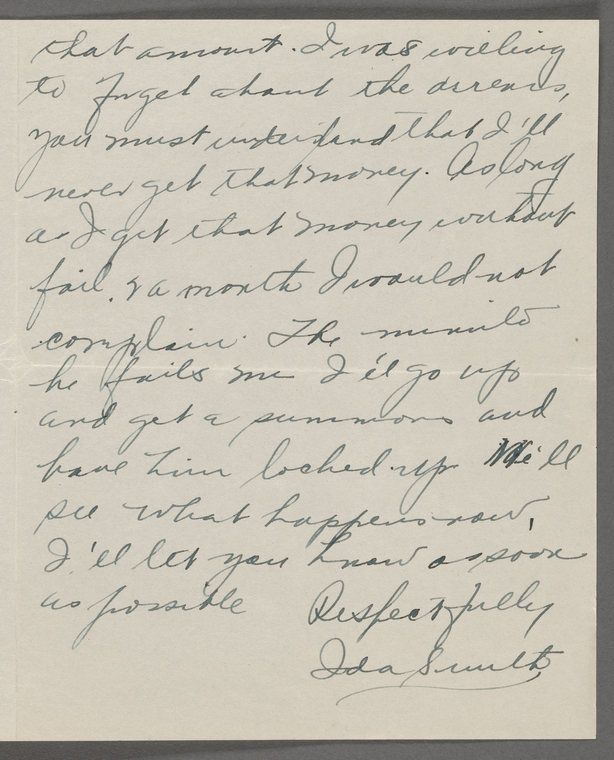 that amount. I was willing
to forget about the arrears,
you must understand that I'll
never get that money. As long
as I get that money without
fail. a month I would not
complain. The minute
he fails me I'll go up
and get a summons and
have him locked up We'll
see what happens now,
I'll let you know as soon
as possible Respectfully
Ida Smith